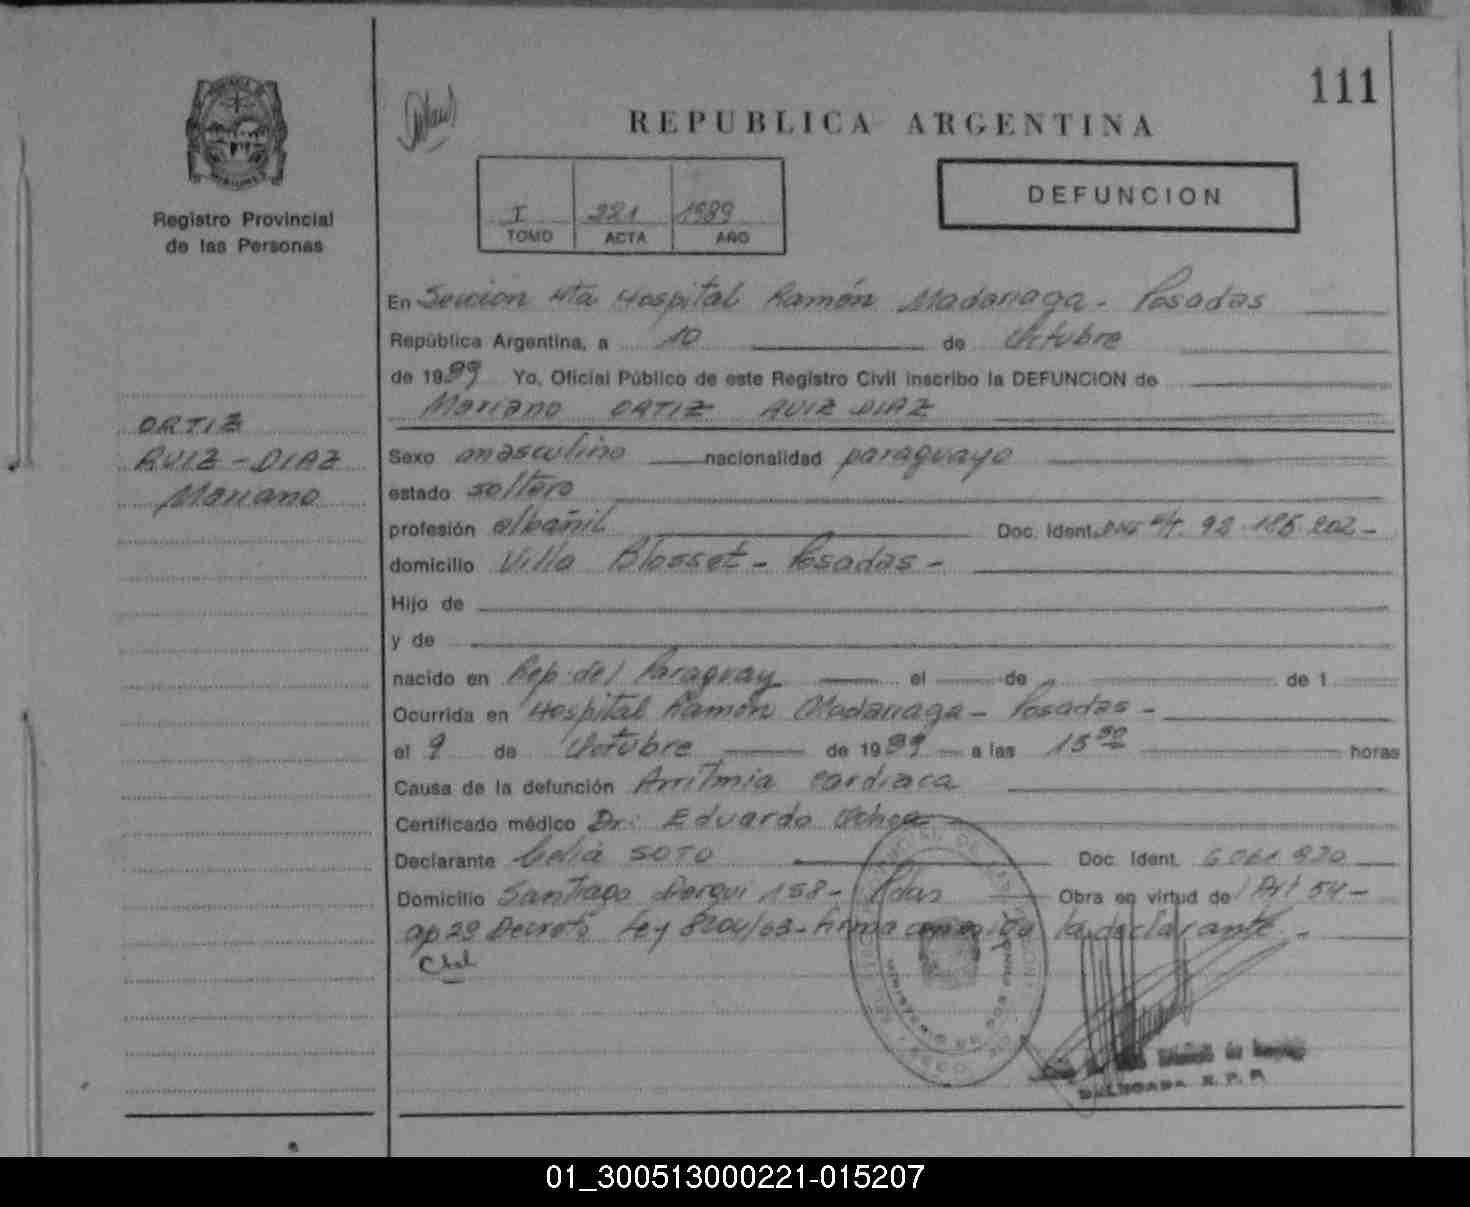 111
REPUBLICA ARGENTINA
DEFUNCION
I 221 1989
TOMO ACTA AÑO
Registro Provincial
de las Personas
ORTIZ
RUIZ - DIAZ
Mariano
En Seccion 4ta Hospital Ramón Madariaga - Posadas
República Argentina, a 10 de Octubre
de 1989 Yo, Oficial Público de este Registro Civil inscribo la DEFUNCION de
Mariano ORTIZ RUIZ DIAZ
Sexo masculino nacionalidad paraguayo
estado soltero
profesión albañil Doc. Ident. 92.186.202 -
domicilio Villa Blosset - Posadas -
Hijo de
y de
nacido en Rep. del Paraguay el de de 1
Ocurrida en Hospital Ramón Madariaga - Posadas -
el 9 de Octubre de 1989 a las 15 50 horas
Causa de la defunción Arritmia cardiaca
Certificado médico Dr: Eduardo Ochoa
Declarante Celia SOTO Doc. Ident. 6061930
Domicilio Santiago Derqui 158 - Pdas Obra en virtud del Art 54 -
ap 2º Decreto Ley 8204/63 - firma conmigo la declarante -
DELEGADA R. P. P.
01_300513000221-015207